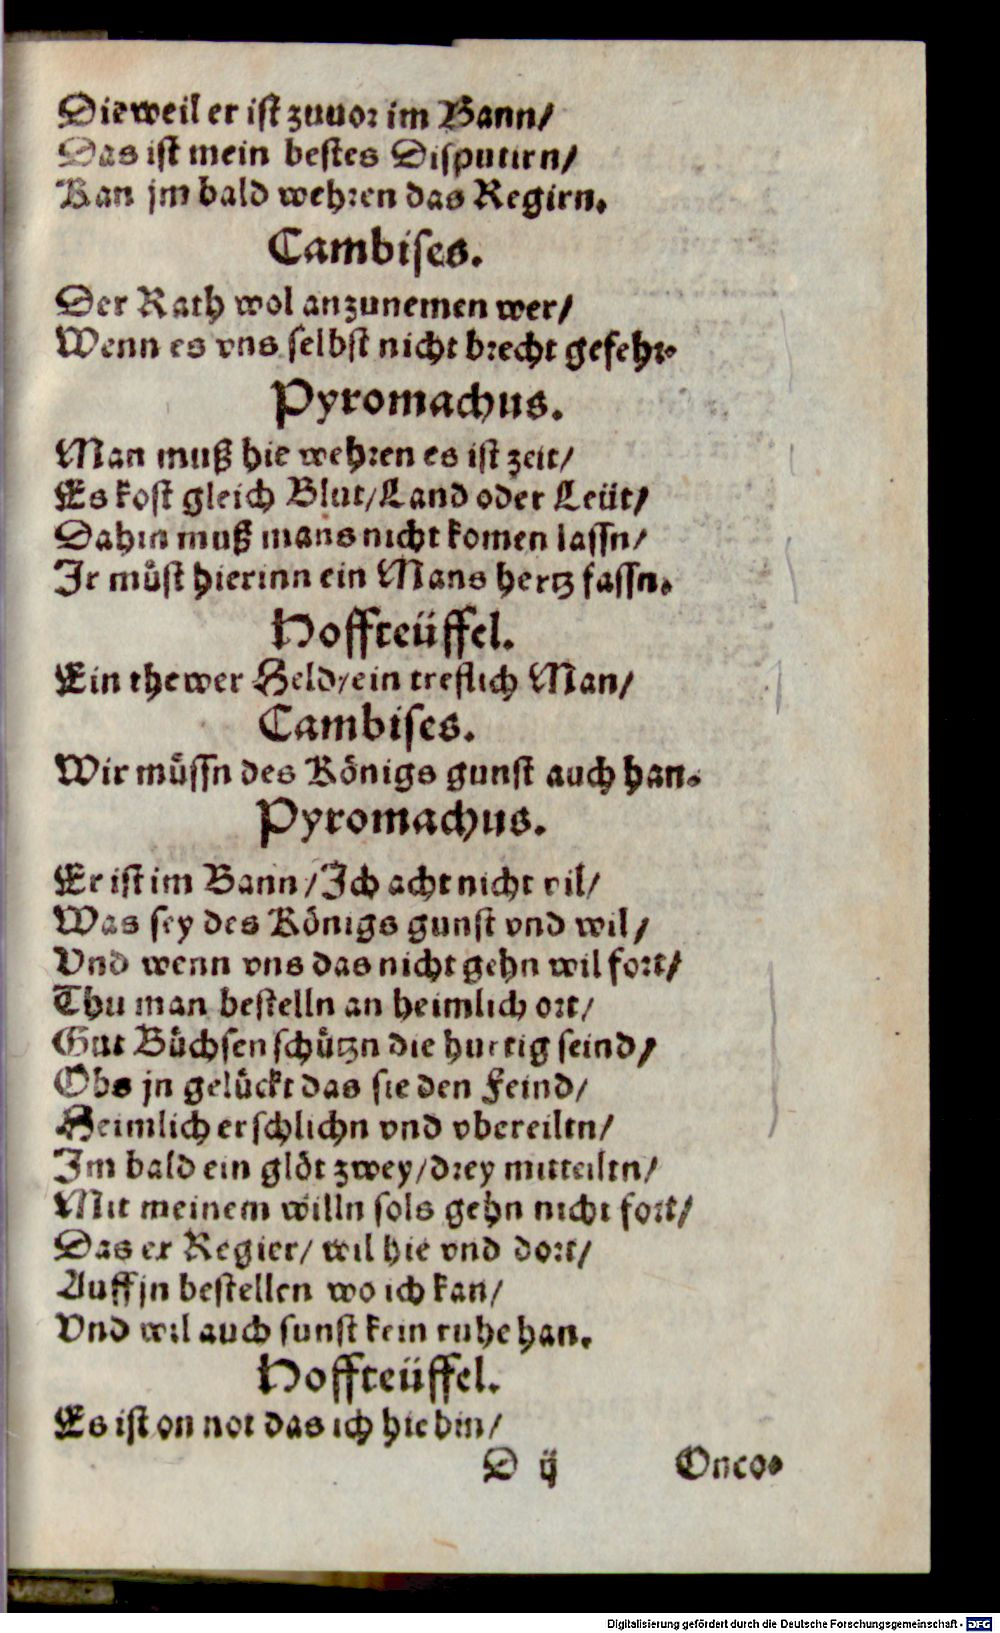 Dieweil er ist zuuor im Bann/
Das ist mein bestes Disputirn/
Kan jm bald wehren das Regirn.
Cambises.
Der Rath wol anzunemen wer/
Wenn es vns selbst nicht brecht gefehr.
Pyromachus.
Man muß hie wehren es ist zeit/
Es kost gleich Blut/Land oder Leüt/
Dahin muß mans nicht komen lassn/
Jr müst hierinn ein Mans hertz fassn.
Hoffteüffel.
Ein thewer Held/ein treflich Man/
Cambises.
Wir müssn des Königs gunst auch han.
Pyromachus.
Er ist im Bann/Jch acht nicht vil/
Was sey des Königs gunst vnd wil/
Vnd wenn vns das nicht gehn wil fort/
Thu man bestelln an heimlich ort/
Gut Büchsen schützn die hurtig seind/
Obs jn gelückt das sie den Feind/
Heimlich erschlichn vnd vbereiltn/
Jm bald ein glöt zwey/drey mitteiltn/
Mit meinem willn sols gehn nicht fort/
Das er Regier/ wil hie vnd dort/
Auff jn bestellen wo ich kan/
Vnd wil auch sunst kein ruhe han.
Hoffteüffel.
Es ist on not das ich hie bin/
D ij Onco.
Digitalisierung gefördert durch die Deutsche Forschungsgemeinschaft - DFG